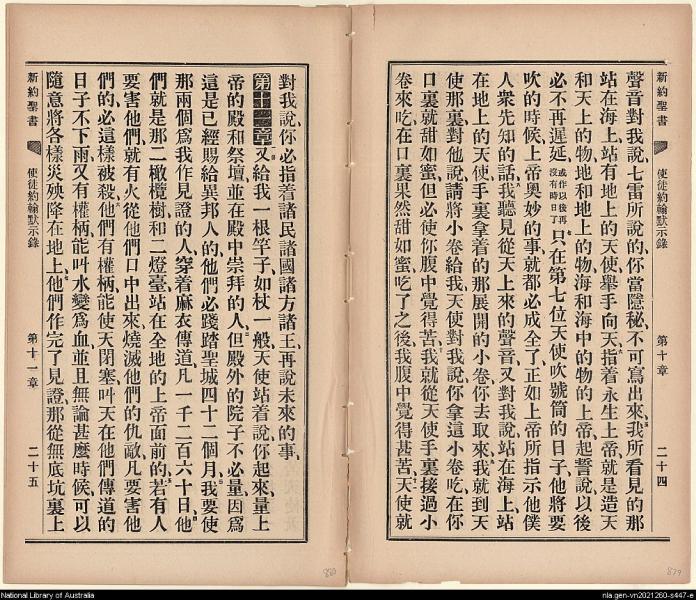 新約聖書 使徒約翰默示錄 第十章 二十四
聲音對我說、七雷所說的、你當隱秘、不可寫出來、我所看見的那
站在海上、站有地上的天使、舉手向天、指着永生上帝、就是造天
和天上的物、地和地上的物、海和海中的物的上帝、起誓說、以後
必不再遲延、或作以後再沒有時日了只在第七位天使吹號筒的日子、他將要
吹的時候、上帝奧妙的事、就都必成全了、正如上帝所指示他僕
人衆先知的話、我聽見從天上來的聲音、又對我說、站在海上、站
在地上的天使、手裏拿着的那展開的小卷、你去取來、我就到天
使那裏、對他說、請將小卷給我、天使對我說、你拿這小卷吃、在你
口裏就甜如蜜、但必使你腹中覺得苦、我就從天使手裏接過小
卷來吃、在口裏果然甜如蜜、吃了之後、我腹中覺得甚苦、天使就
對我說、你必指着諸民諸國諸方諸王、再說未來的事、
第十一章又給我一根竿子、如杖一般、天使站着說、你起來、量上
帝的殿、和祭壇、並在殿中崇拜的人、但殿外的院子不必量、因爲
這是已經賜給異邦人的、他們必踐踏聖城四十二個月、我要使
那兩個爲我作見證的人、穿着麻衣傳道、凡一千二百六十日、他
們就是那二橄欖樹、和二燈臺、站在全地的上帝面前的、若有人
要害他們、就有火從他們口中出來、燒滅他們的仇敵、凡要害他
們的、必這樣被殺、他們有權柄、能使天閉塞、叫天在他們傳道的
日子不下雨、又有權柄、能叫水變爲血、並且無論甚麼時候、可以
隨意將各樣災殃降在地上、他們作完了見證、那從無底坑裏上
新約聖書 使徒約翰默示錄 第十一章 二十五
880
879
National Library of Australia
nla.gen-vn2021260-s447-e